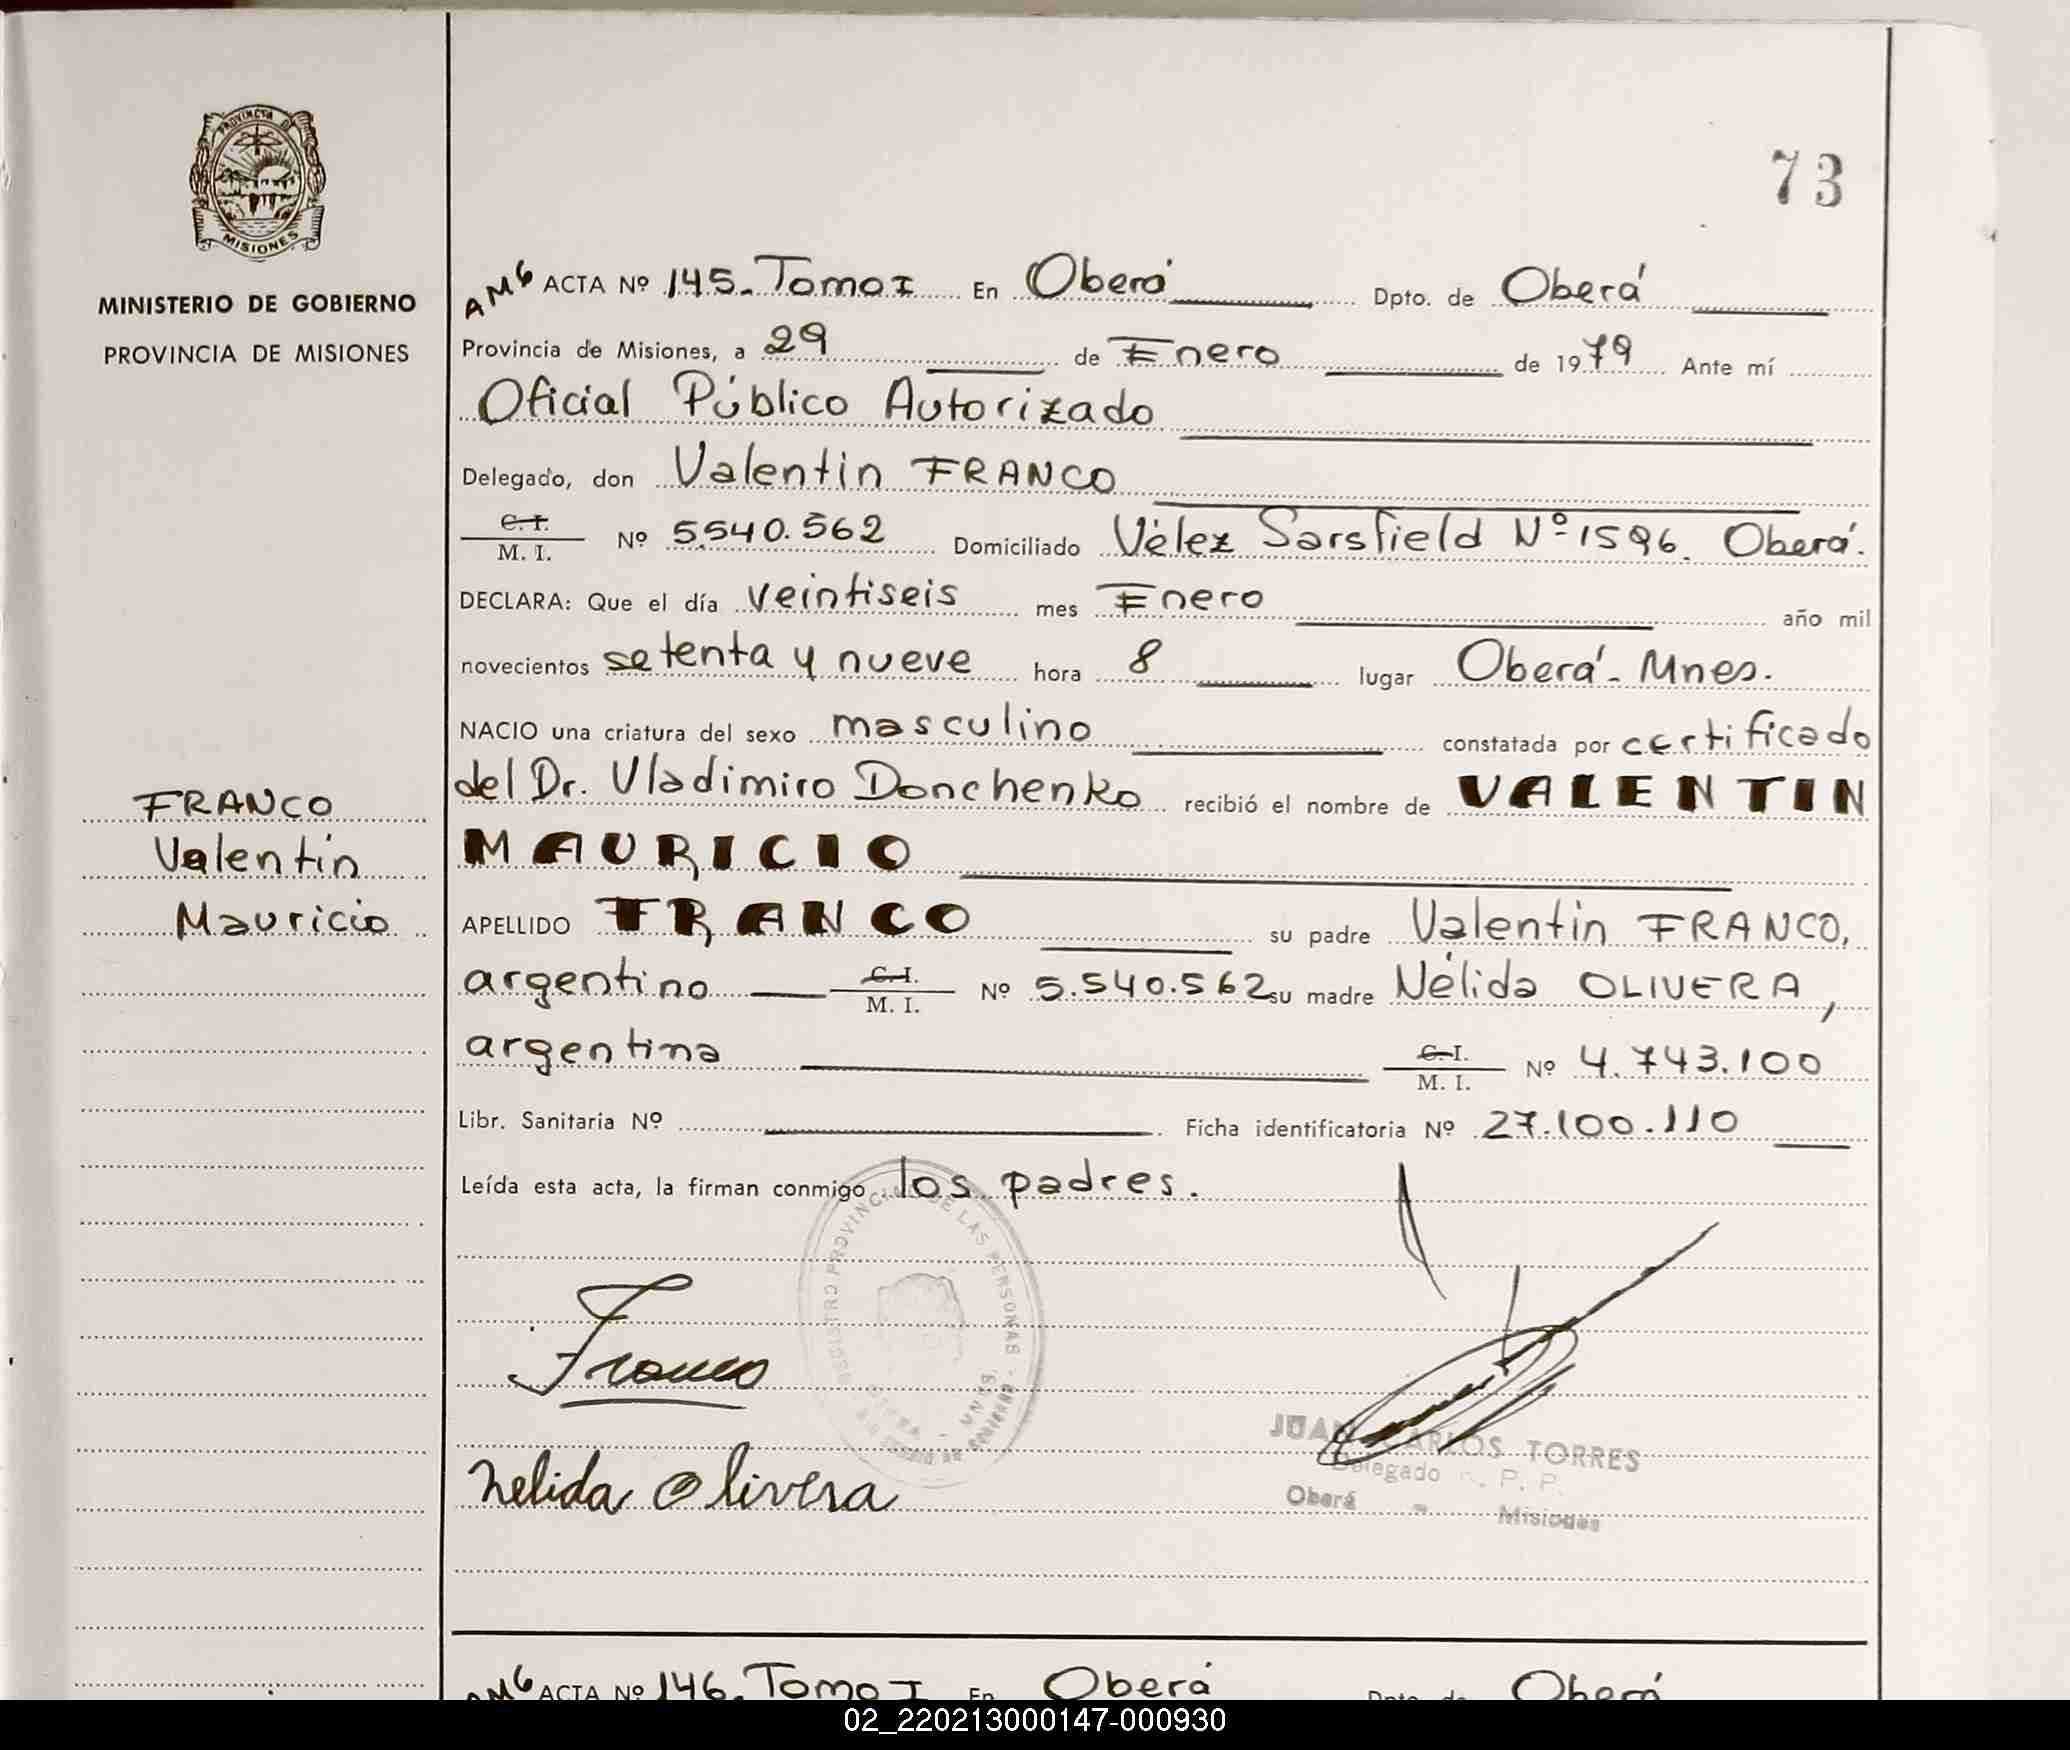 PROVINCIA D
MISIONES
MINISTERIO DE GOBIERNO
PROVINCIA DE MISIONES
FRANCO
Valentin
Mauricio
73
AM6 ACTA Nº 145. Tomo I En Oberá Dpto. de Oberá
Provincia de Misiones, a 29 de Enero de 1979 Ante mí
Oficial Público Autorizado
Delegado, don Valentin FRANCO
C. I.
M. I. Nº 5.540.562 Domiciliado Vélez Sarsfield Nº 1596. Oberá.
DECLARA: Que el día veintiseis mes Enero año mil
novecientos setenta y nueve hora 8 lugar Oberá - Mnes.
NACIO una criatura del sexo masculino constatada por certificado
del Dr. Vladimiro Donchenko recibió el nombre de VALENTIN
MAURICIO
APELLIDO FRANCO su padre Valentin FRANCO,
argentino C. I.
M. I. Nº 5.540.562 su madre Nélida OLIVERA,
argentina C. I.
M. I. Nº 4.743.100
Libr. Sanitaria Nº Ficha identificatoria Nº 27.100.110
Leída esta acta, la firman conmigo los padres.
REGISTRO PROVINCIAL DE LAS PERSONAS
Franco
Nelida Olivera
JUAN CARLOS TORRES
Delegado R. P. P.
Oberá - Misiones
AM6 ACTA Nº 146. Tomo I En Oberá Dpto. de Oberá
02_220213000147-000930